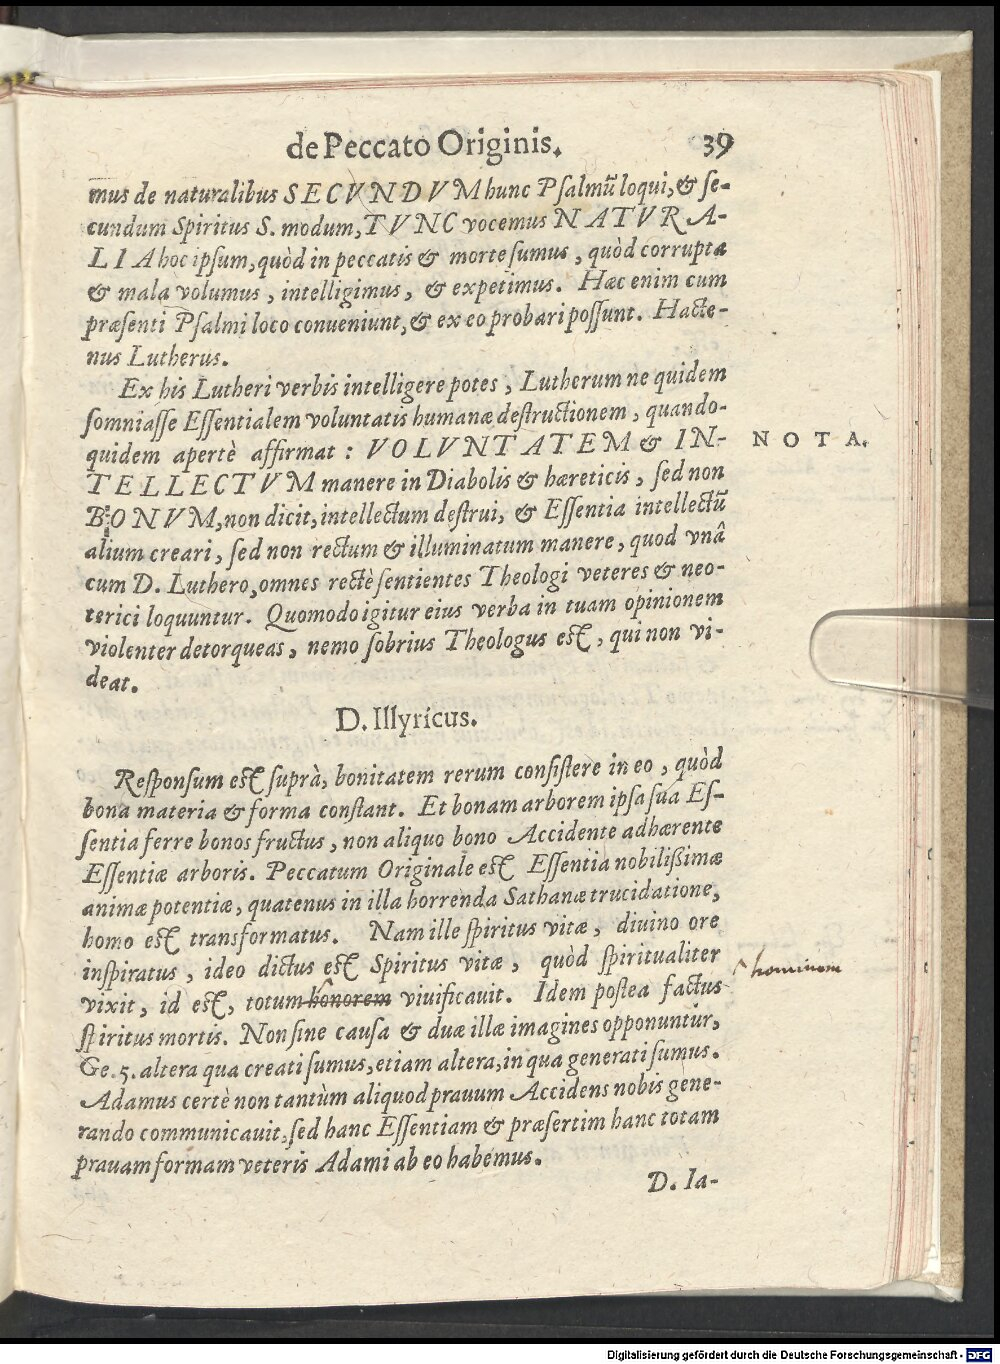 de Peccato Originis. 39
mus de naturalibus SECVNDVM hunc Psalmũ loqui, & se-
cundum Spiritus S. modum, TVNC vocemus NATVRA-
LIA hoc ipsum, quòd in peccatis & morte sumus, quòd corrupta
& mala volumus, intelligimus, & expetimus. Hæc enim cum
præsenti Psalmi loco conueniunt, & ex eo probari possunt. Hacte-
nus Lutherus.
Ex his Lutheri verbis intelligere potes, Lutherum ne quidem
somniasse Essentialem voluntatis humanæ destructionem, quando-
quidem apertè affirmat: VOLVNTATEM & IN- NOTA.
TELLECTVM manere in Diabolis & hæreticis, sed non
BONVM, non dicit, intellectum destrui, & Essentia intellectũ
alium creari, sed non rectum & illuminatum manere, quod vnâ
cum D. Luthero, omnes rectè sentientes Theologi veteres & neo-
terici loquuntur. Quomodo igitur eius verba in tuam opinionem
violenter detorqueas, nemo sobrius Theologus est, qui non vi-
deat.
D. Illyricus.
Responsum est suprà, bonitatem rerum consistere in eo, quòd
bona materia & forma constant. Et bonam arborem ipsa sua Es-
sentia ferre bonos fructus, non aliquo bono Accidente adhærente
Essentiæ arboris. Peccatum Originale est Essentia nobilißimæ
animæ potentiæ, quatenus in illa horrenda Sathanæ trucidatione,
homo est transformatus. Nam ille spiritus vitæ, diuino ore
inspiratus, ideo dictus est Spiritus vitæ, quòd spiritualiter
vixit, id est, totum honorem viuificauit. Idem postea factus
hominem
spiritus mortis. Non sine causa & duæ illæ imagines opponuntur,
Ge. 5. altera qua creati sumus, etiam altera, in qua generati sumus.
Adamus certè non tantùm aliquod prauum Accidens nobis gene-
rando communicauit, sed hanc Essentiam & præsertim hanc totam
prauam formam veteris Adami ab eo habemus.
D. Ia-
Digitalisierung gefördert durch die Deutsche Forschungsgemeinschaft - DFG